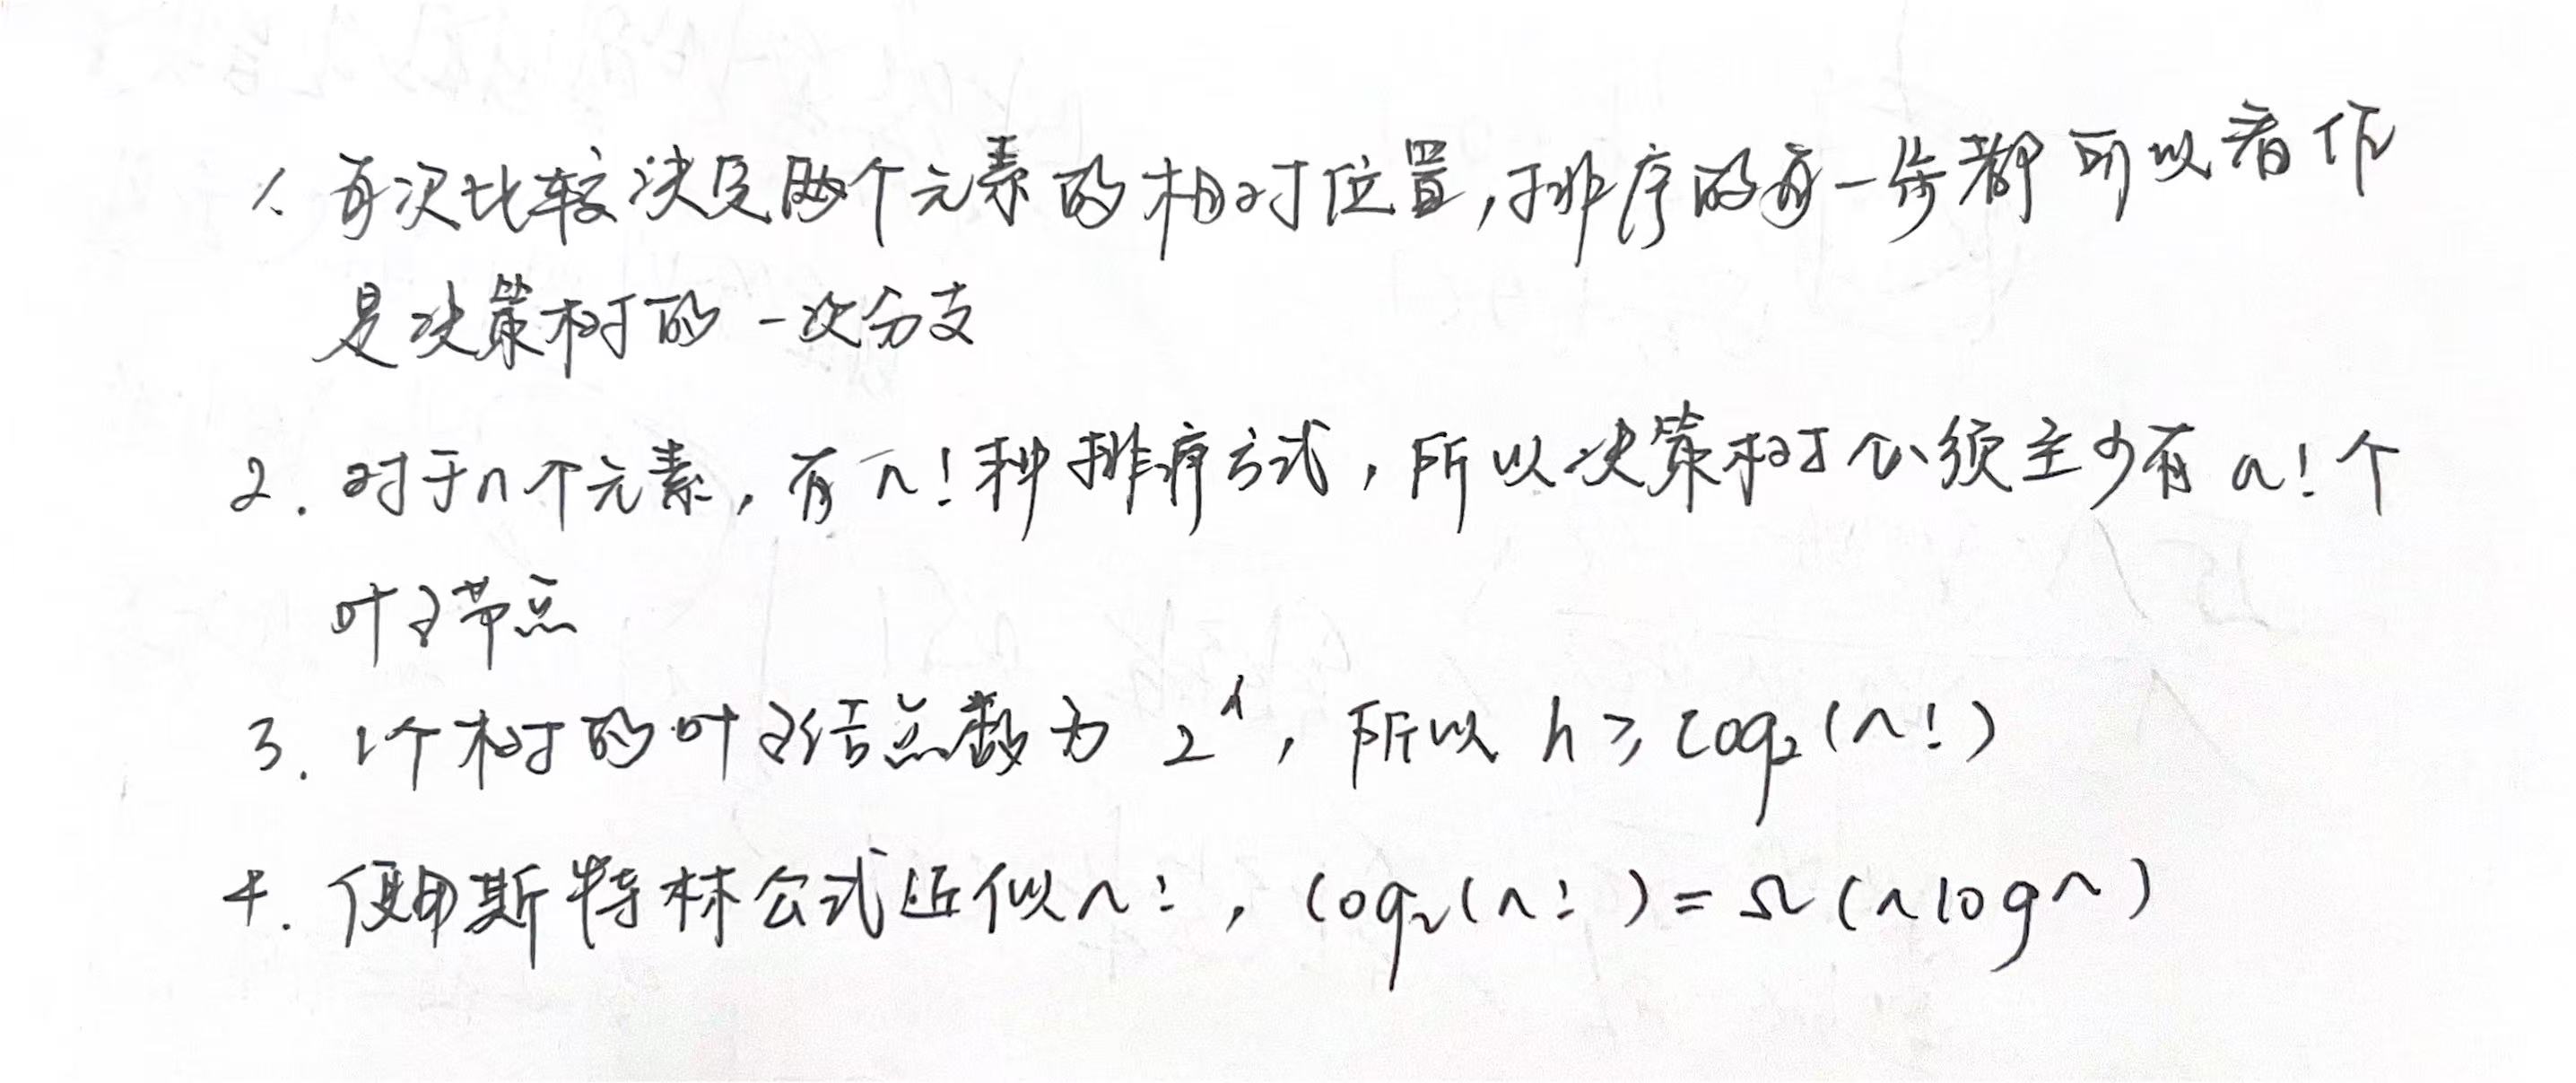 1. 每次比较决定两个元素的相对位置,排序的每一步都可以看作
是决策树的一次分支
2. 对于n个元素,有n!种排序方式,所以决策树必须至少有n!个
叶子节点
3. 1个树的叶子结点数为 2^h,所以 h ≥ log₂(n!)
4. 使用斯特林公式近似n!,log₂(n!) = Ω(nlogn)